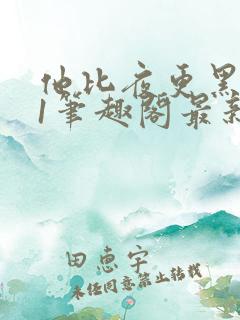 他比夜更黑
1笔趣阁最新
田惠宇
未经同意禁止转载